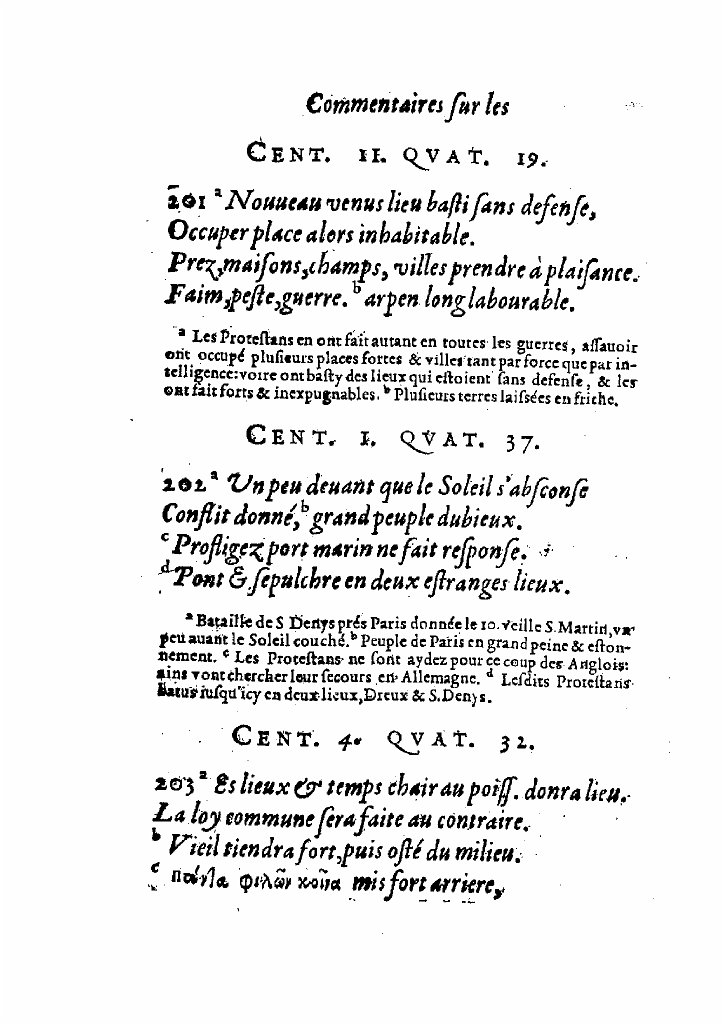 Commentaires ſur les
CENT. II. QVAT. 19.
201 a Nouueau venus lieu baſti ſans defenſe,
Occuper place alors inhabitable.
Prez, maiſons, champs, villes prendre à plaiſance.
Faim, peſte, guerre. b arpen long labourable.
a Les Proteſtans en ont fait autant en toutes les guerres, aſſauoir
ont occupé pluſieurs places fortes & villes tant par force que par in-
telligence: voire ont baſty des lieux qui eſtoient ſans defenſe, & les
ont fait forts & inexpugnables. b Pluſieurs terres laiſſées en friche.
CENT. I. QVAT. 37.
202 a Un peu deuant que le Soleil s'abſconſe
Conflit donné, b grand peuple dubieux.
c Profligez port marin ne fait reſponſe.
d Pont & ſepulchre en deux eſtranges lieux.
a Bataille de S Denys prés Paris donnée le 10. veille S. Martin, vn
peu auant le Soleil couché. b Peuple de Paris en grand peine & eſton-
nement. c Les Proteſtans ne ſont aydez pour ce coup des Anglois:
ains vont chercher leur ſecours en Allemagne. d Leſdits Proteſtans
Batus iuſqu'icy en deux lieux, Dreux & S. Denys.
CENT. 4. QVAT. 32.
203 a Es lieux & temps chair au poiſſ. donra lieu.
La loy commune ſera faite au contraire.
b Vieil tiendra fort, puis oſté du milieu.
c πάντα φιλῶν κοῖνα mis fort arriere,